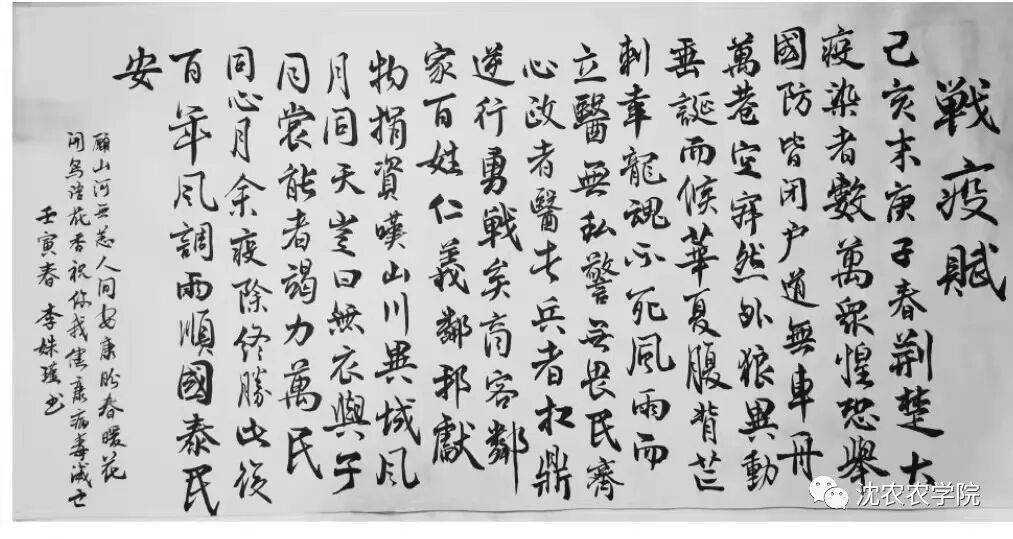 戦疫賦
己亥末庚子春荊楚大
疫染者數萬眾惶恐舉
國防皆闭户道無車舟
萬巷空寂然外狼異動
垂誕而候華夏腹背芒
刺幸龍魂不死風雨而
立醫無私警无畏民齊
心政者醫者兵者扛鼎
逆行勇戦矣商客鄰
家百姓仁義鄰邦獻
物捐資嘆山川異域風
月同天豈曰無衣與子
同裳能者竭力萬民
同心月余疫除终勝此後
百年風調雨順國泰民
安
願山河无恙人间安康盼春暖花
開鸟语花香祝你我健康病毒滅亡
壬寅春 李姝 书
沈农农学院